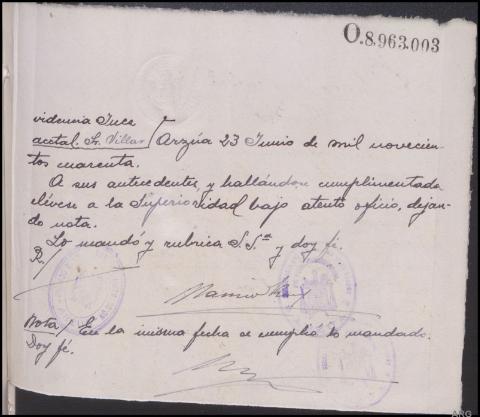 O.8.963.003
videncia Juez
acctal. Sr. Villar / Arzúa 23 Junio de mil novecien-
tos cuarenta.
A sus antecedentes, y hallándose cumplimentada
elévese a la Superioridad bajo atento oficio, dejan-
do nota.
Lo mandó y rubrica S.Sª y doy fé.
R/
Nota/ En la misma fecha se cumplió lo mandado.
Doy fé.
ARG